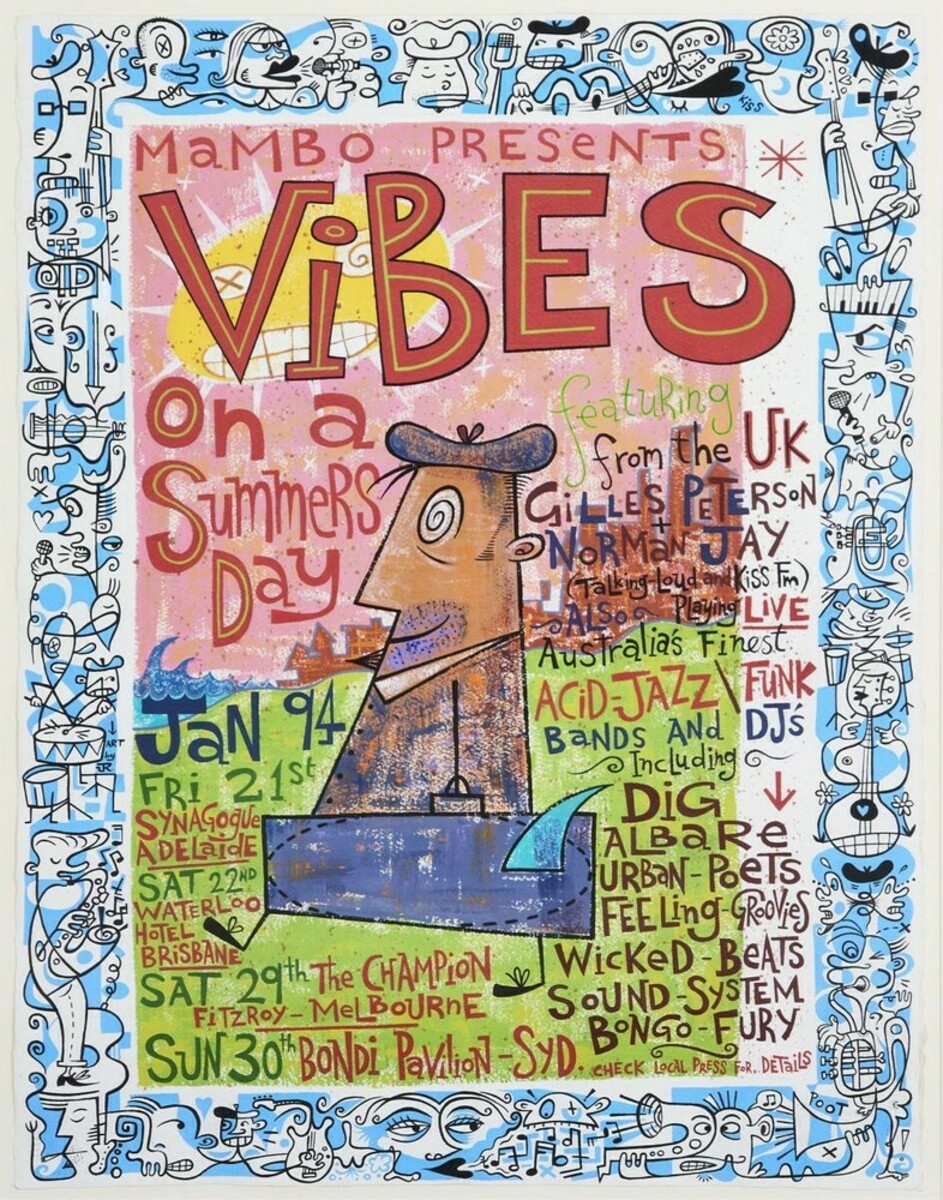 MaMBO PRESENTS
ViBES
On a
SummeRS
Day
featuRing
from the UK
GiLLES PETERSON
+
NORMaN JAY
(Talking-Loud and Kiss Fm)
ALSO Playing LiVE
Australia's Finest
ACiD-JAZZ \ FUNK
BANDS AND DJ's
Including
DiG
ALBaRe
URBaN-PoETS
FEELing-GROOViES
WiCKeD-BEATS
SOUND-SYSTEM
BONGO-FURY
CHECK LOCAL PRESS FOR.. DETaiLS
JaN 94
FRi 21st
SYNAGOgue
ADELaiDE
SAT 22ND
WATERLOO
HoTEL
BRiSBANE
SAT 29th The CHAMPiON
FiTZROY-MeLBOURNE
SUN 30th BONDi PaViLiON-SYD.
KiSS
ART
by
JR
TOOT